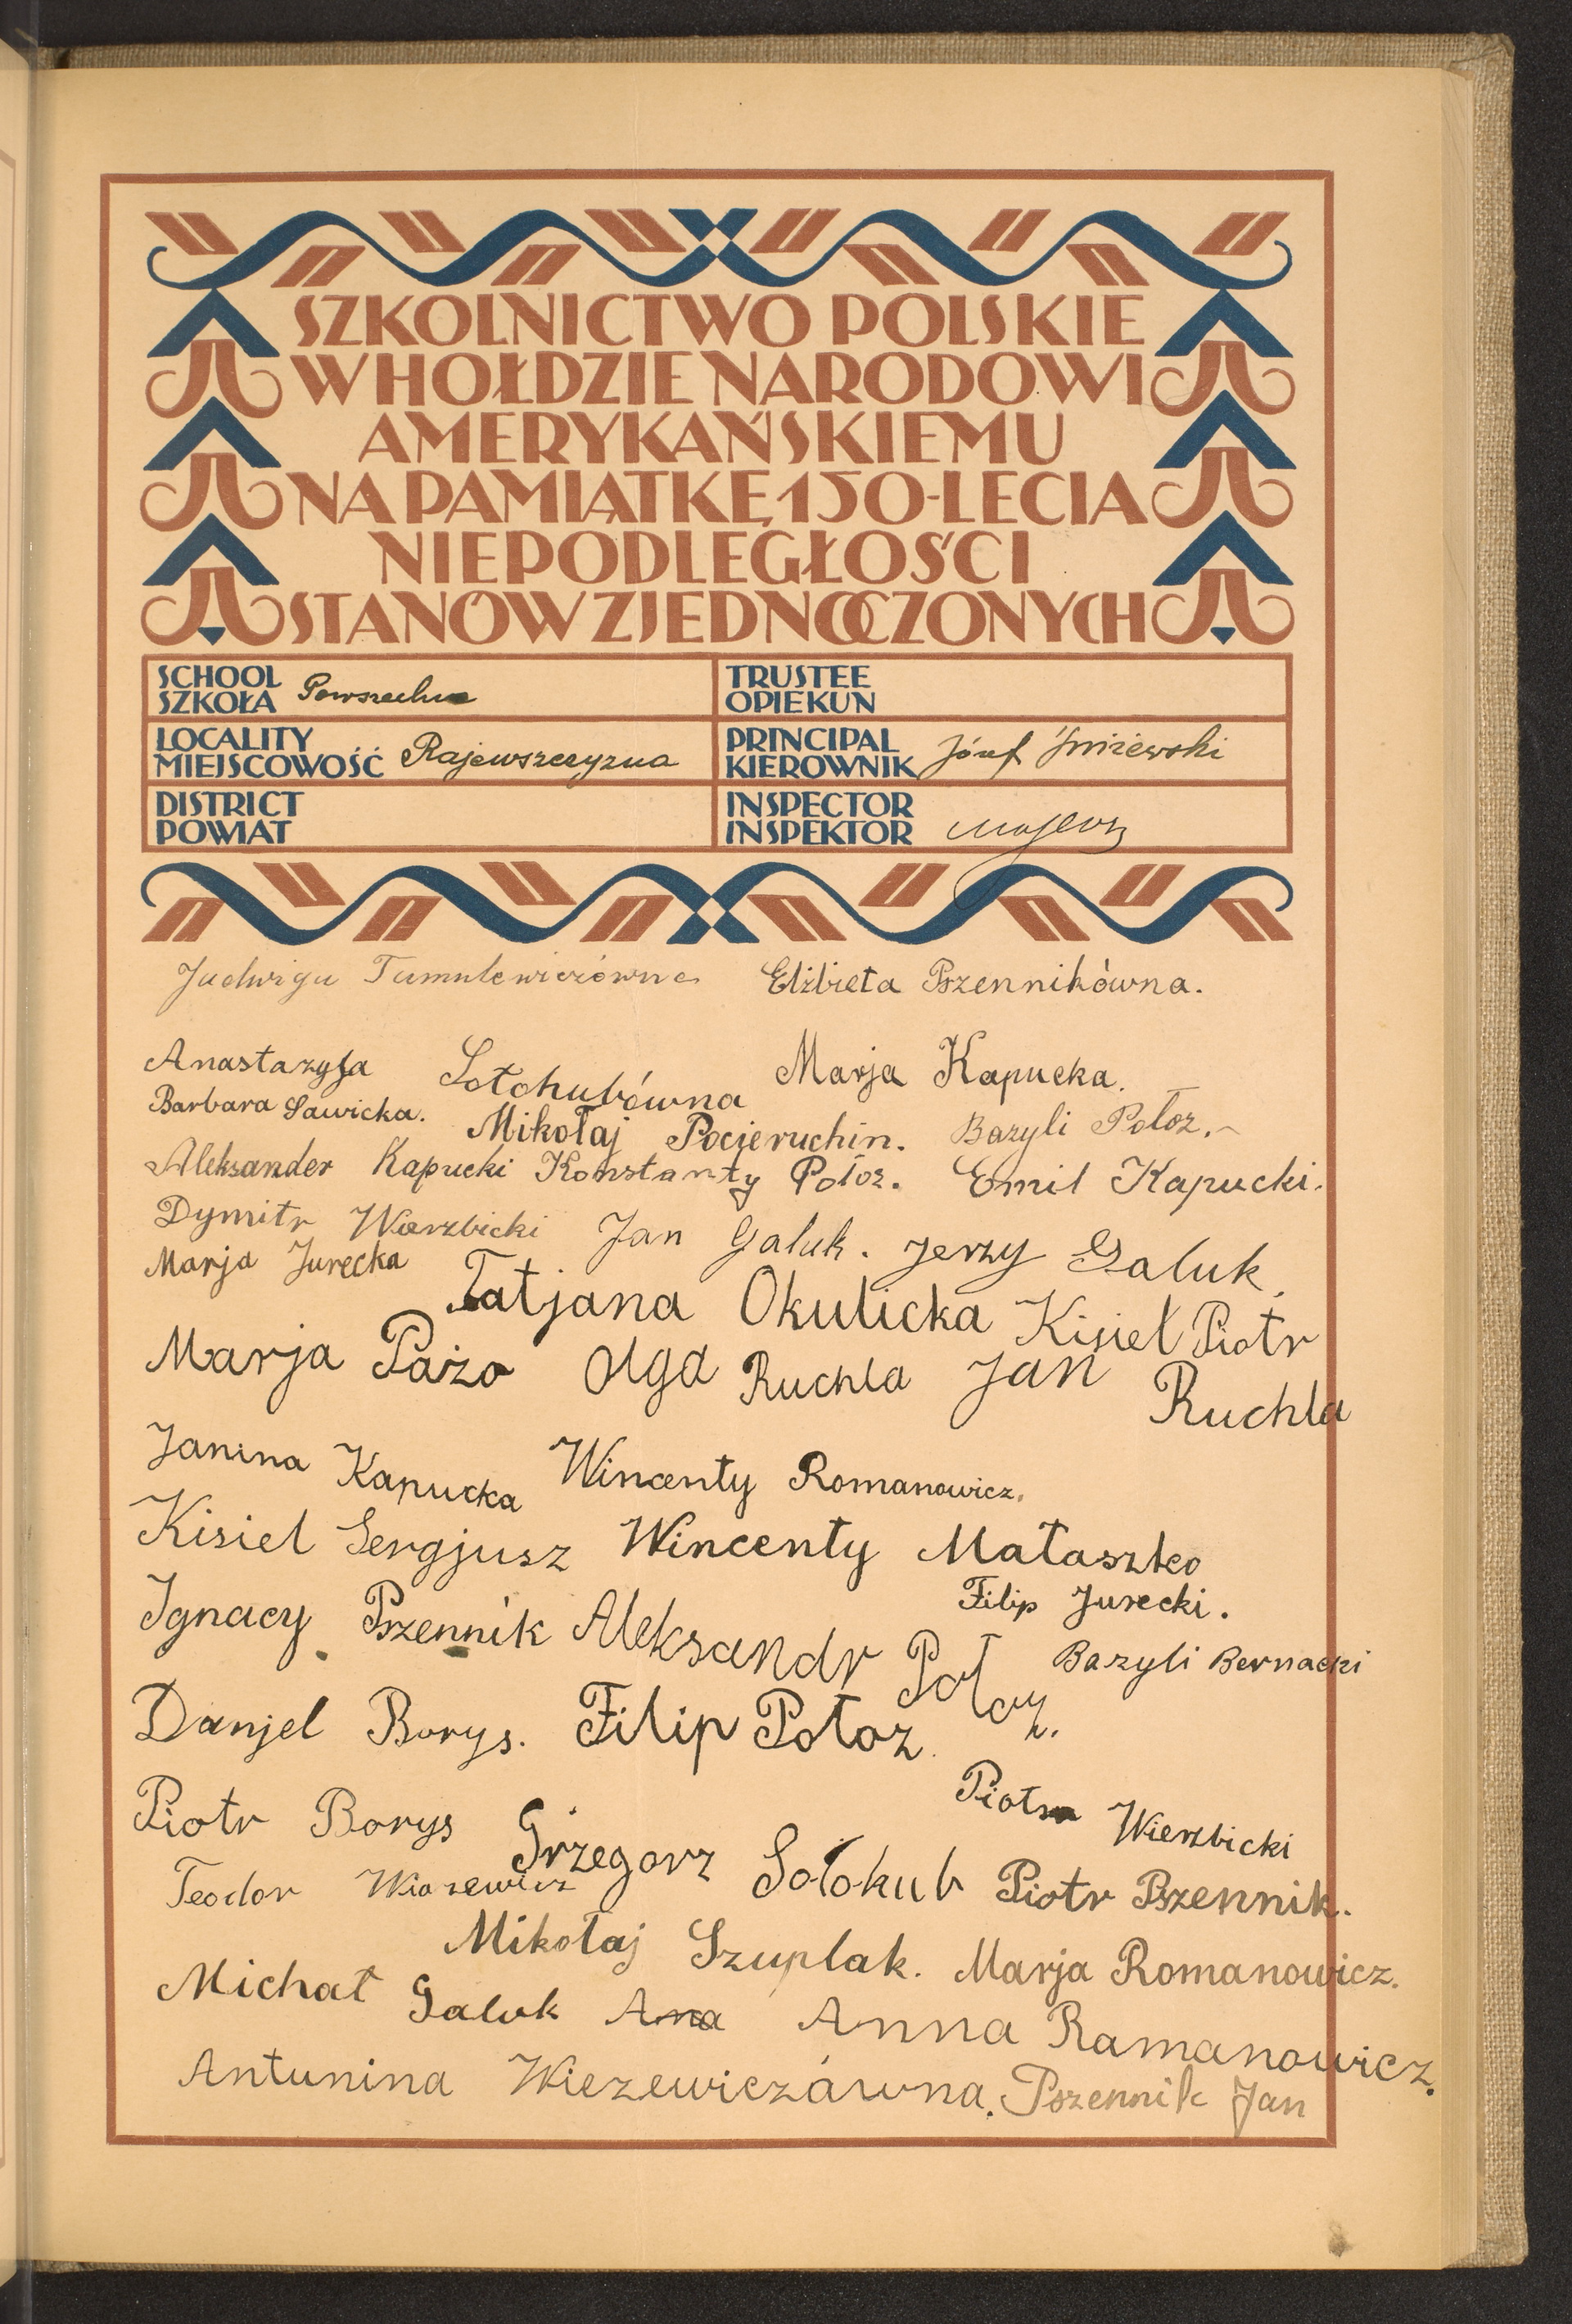 SZKOLNICTWO POLSKIE
W HOŁDZIE NARODOWI
AMERYKAŃSKIEMU
NA PAMIĄTKĘ 150-LECIA
NIEPODLEGŁOŚCI
STANÓW ZJEDNOCZONYCH
SCHOOL
SZKOŁA Powszechna
TRUSTEE
OPIEKUN
LOCALITY
MIEJSCOWOŚĆ Rajewszczyzna
PRINCIPAL
KIEROWNIK Józef
DISTRICT
POWIAT
INSPECTOR
INSPEKTOR
Jadwiga Tumulewiczówna Elżbieta Pszennikówna.
Anastazyja Sołohubówna Marja Kapucka.
Barbara Sawicka. Mikołaj Pocieruchin. Bazyli Połoz.
Aleksander Kapucki Konstanty Połoz. Emil Kapucki.
Dymitr Wierzbicki Jan Galuk. Jerzy Galuk
Marja Jurecka Tatjana Okulicka Kisiel Piotr
Marja Pażo Olga Ruchla Jan Ruchla
Janina Kapucka Wincenty Romanowicz.
Kisiel Sergjusz Wincenty Mataszko
Filip Jurecki.
Ignacy Pszennik Aleksandr Połoz. Bazyli Bernacki
Danjel Borys. Filip Połoz.
Piotr Borys Piotr Wierzbicki
Teodor Grzegorz Sołokub Piotr Pszennik.
Mikołaj Szuplak. Marja Romanowicz.
Michał Galuk Ana Anna Ramanowicz.
Antunina Wiezewiczówna. Pszennik Jan